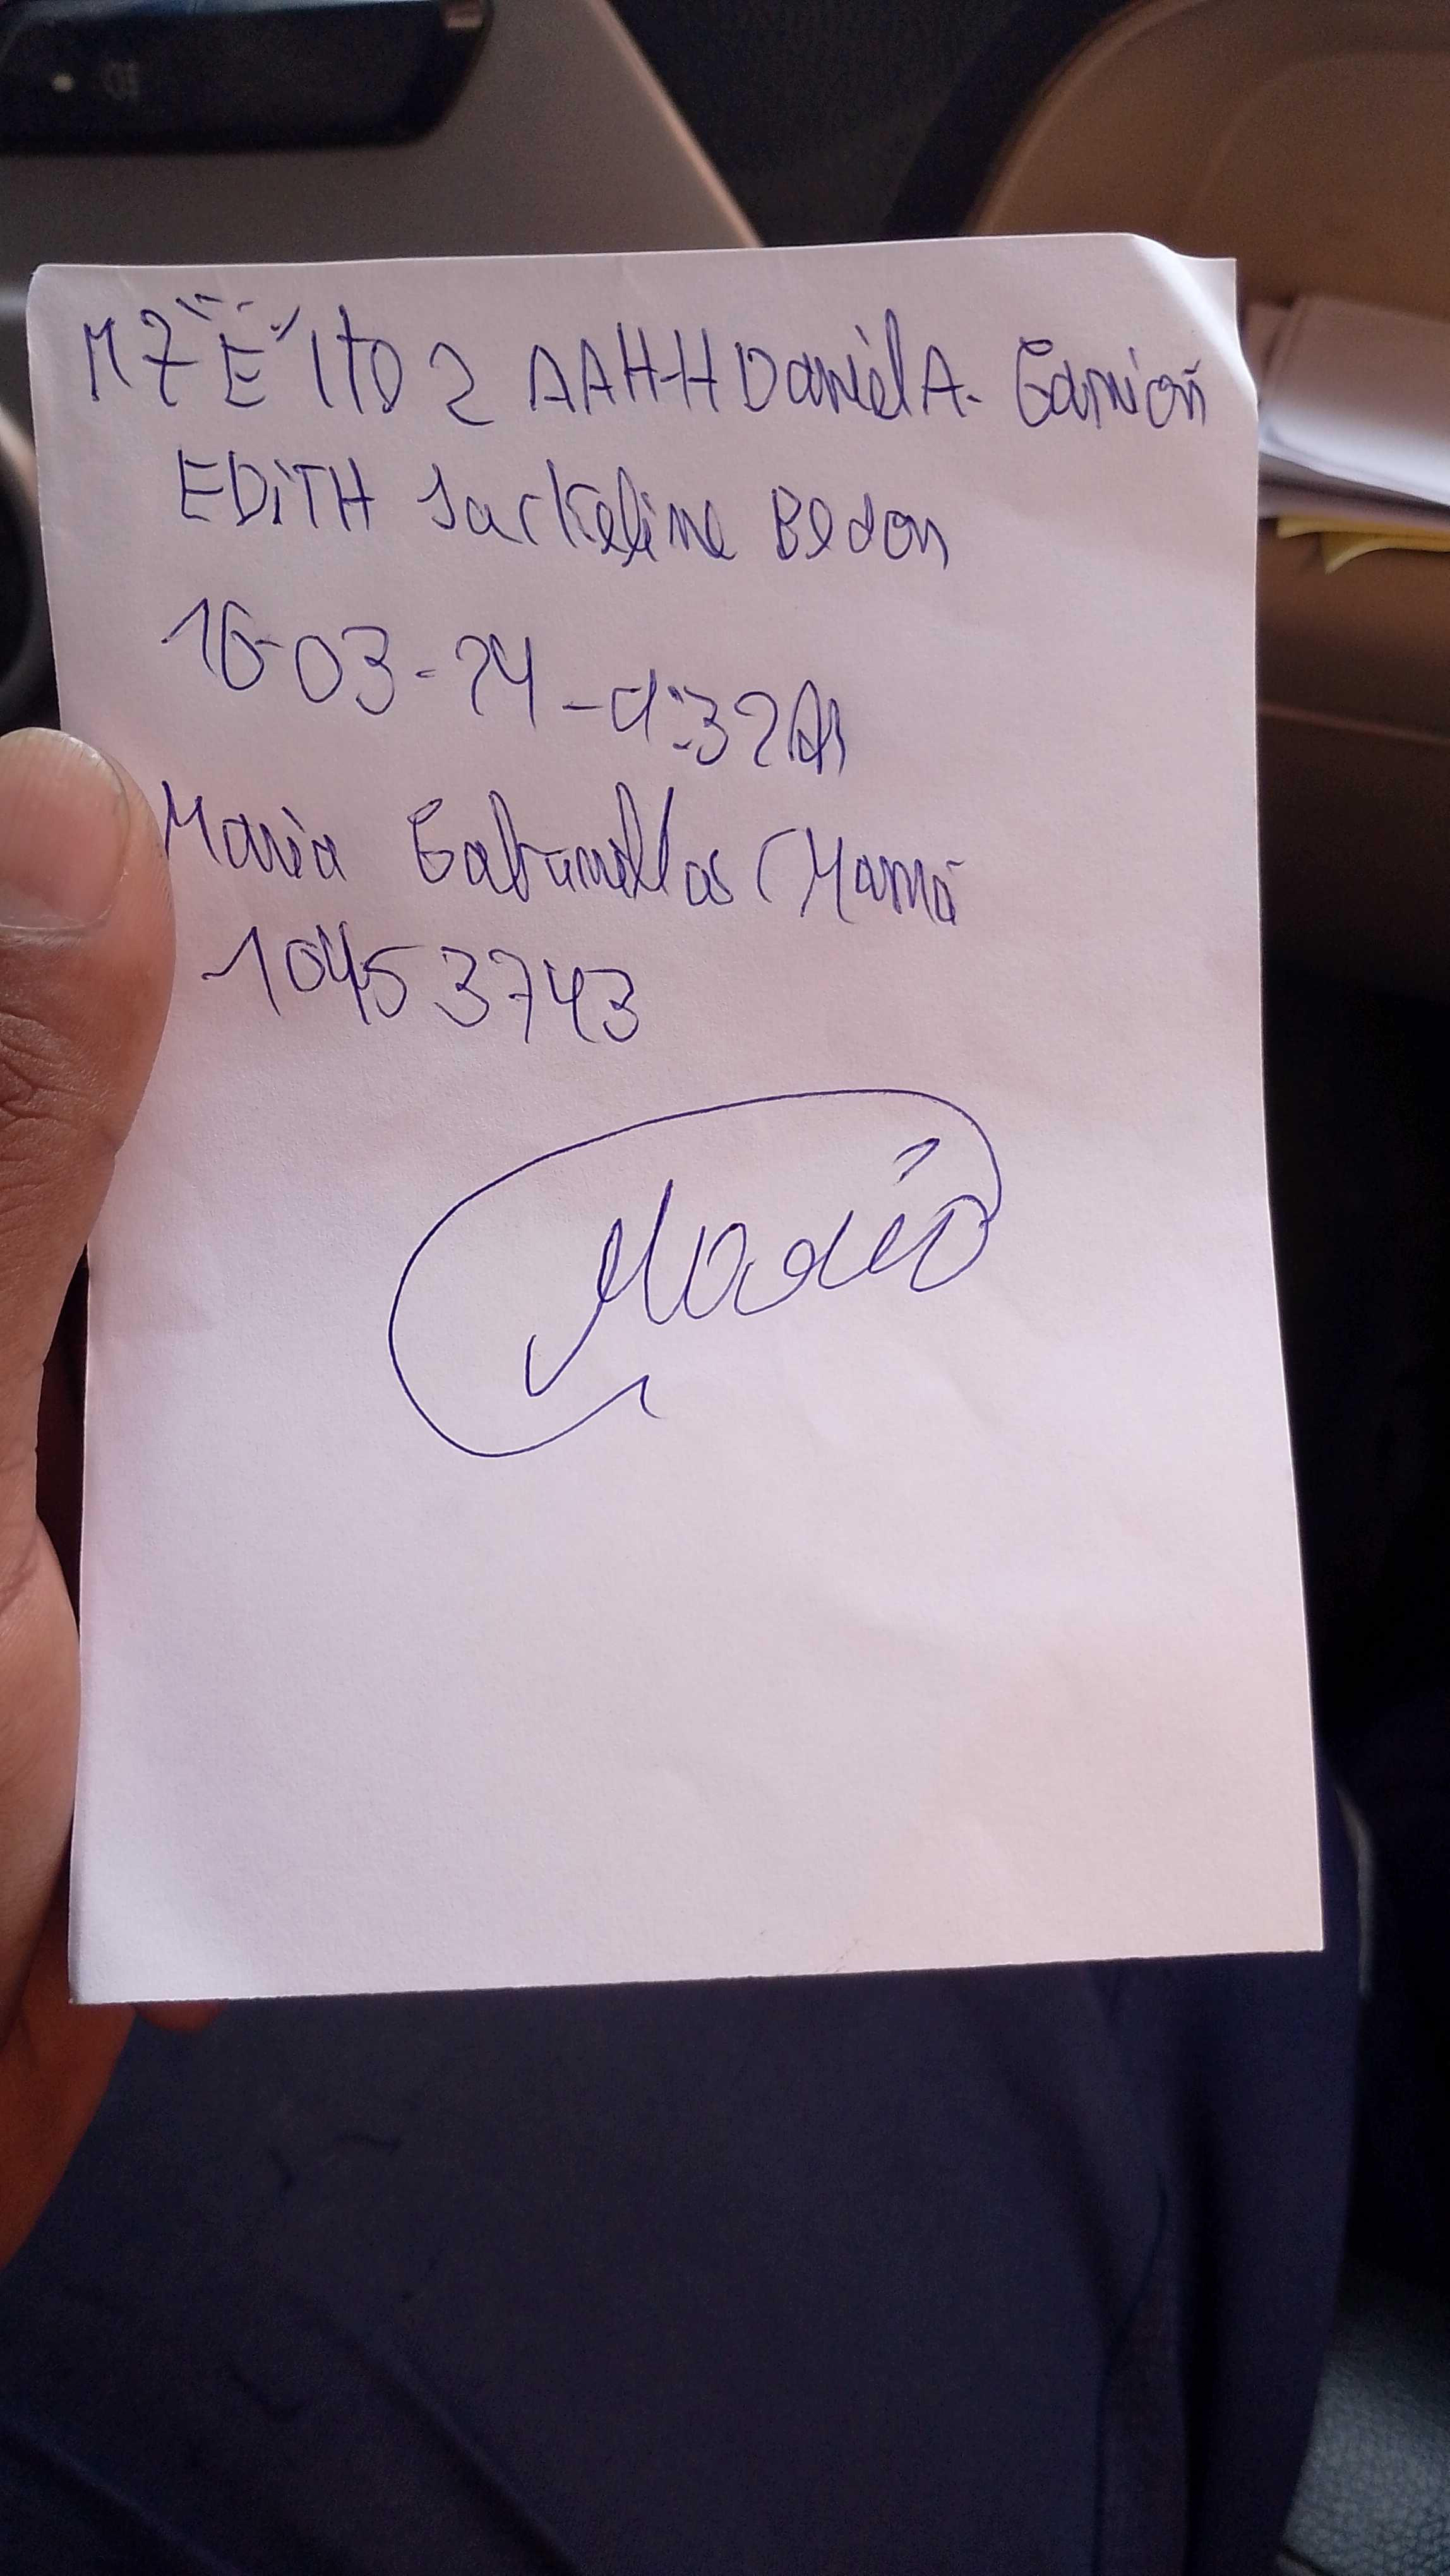 MZ "E" lto 2 AAHH Daniel A. Carrión
EDiTH Jackeline Bedon
16-03-24-9:32AM
Maria Cabanillas (Mamá
10453743
María